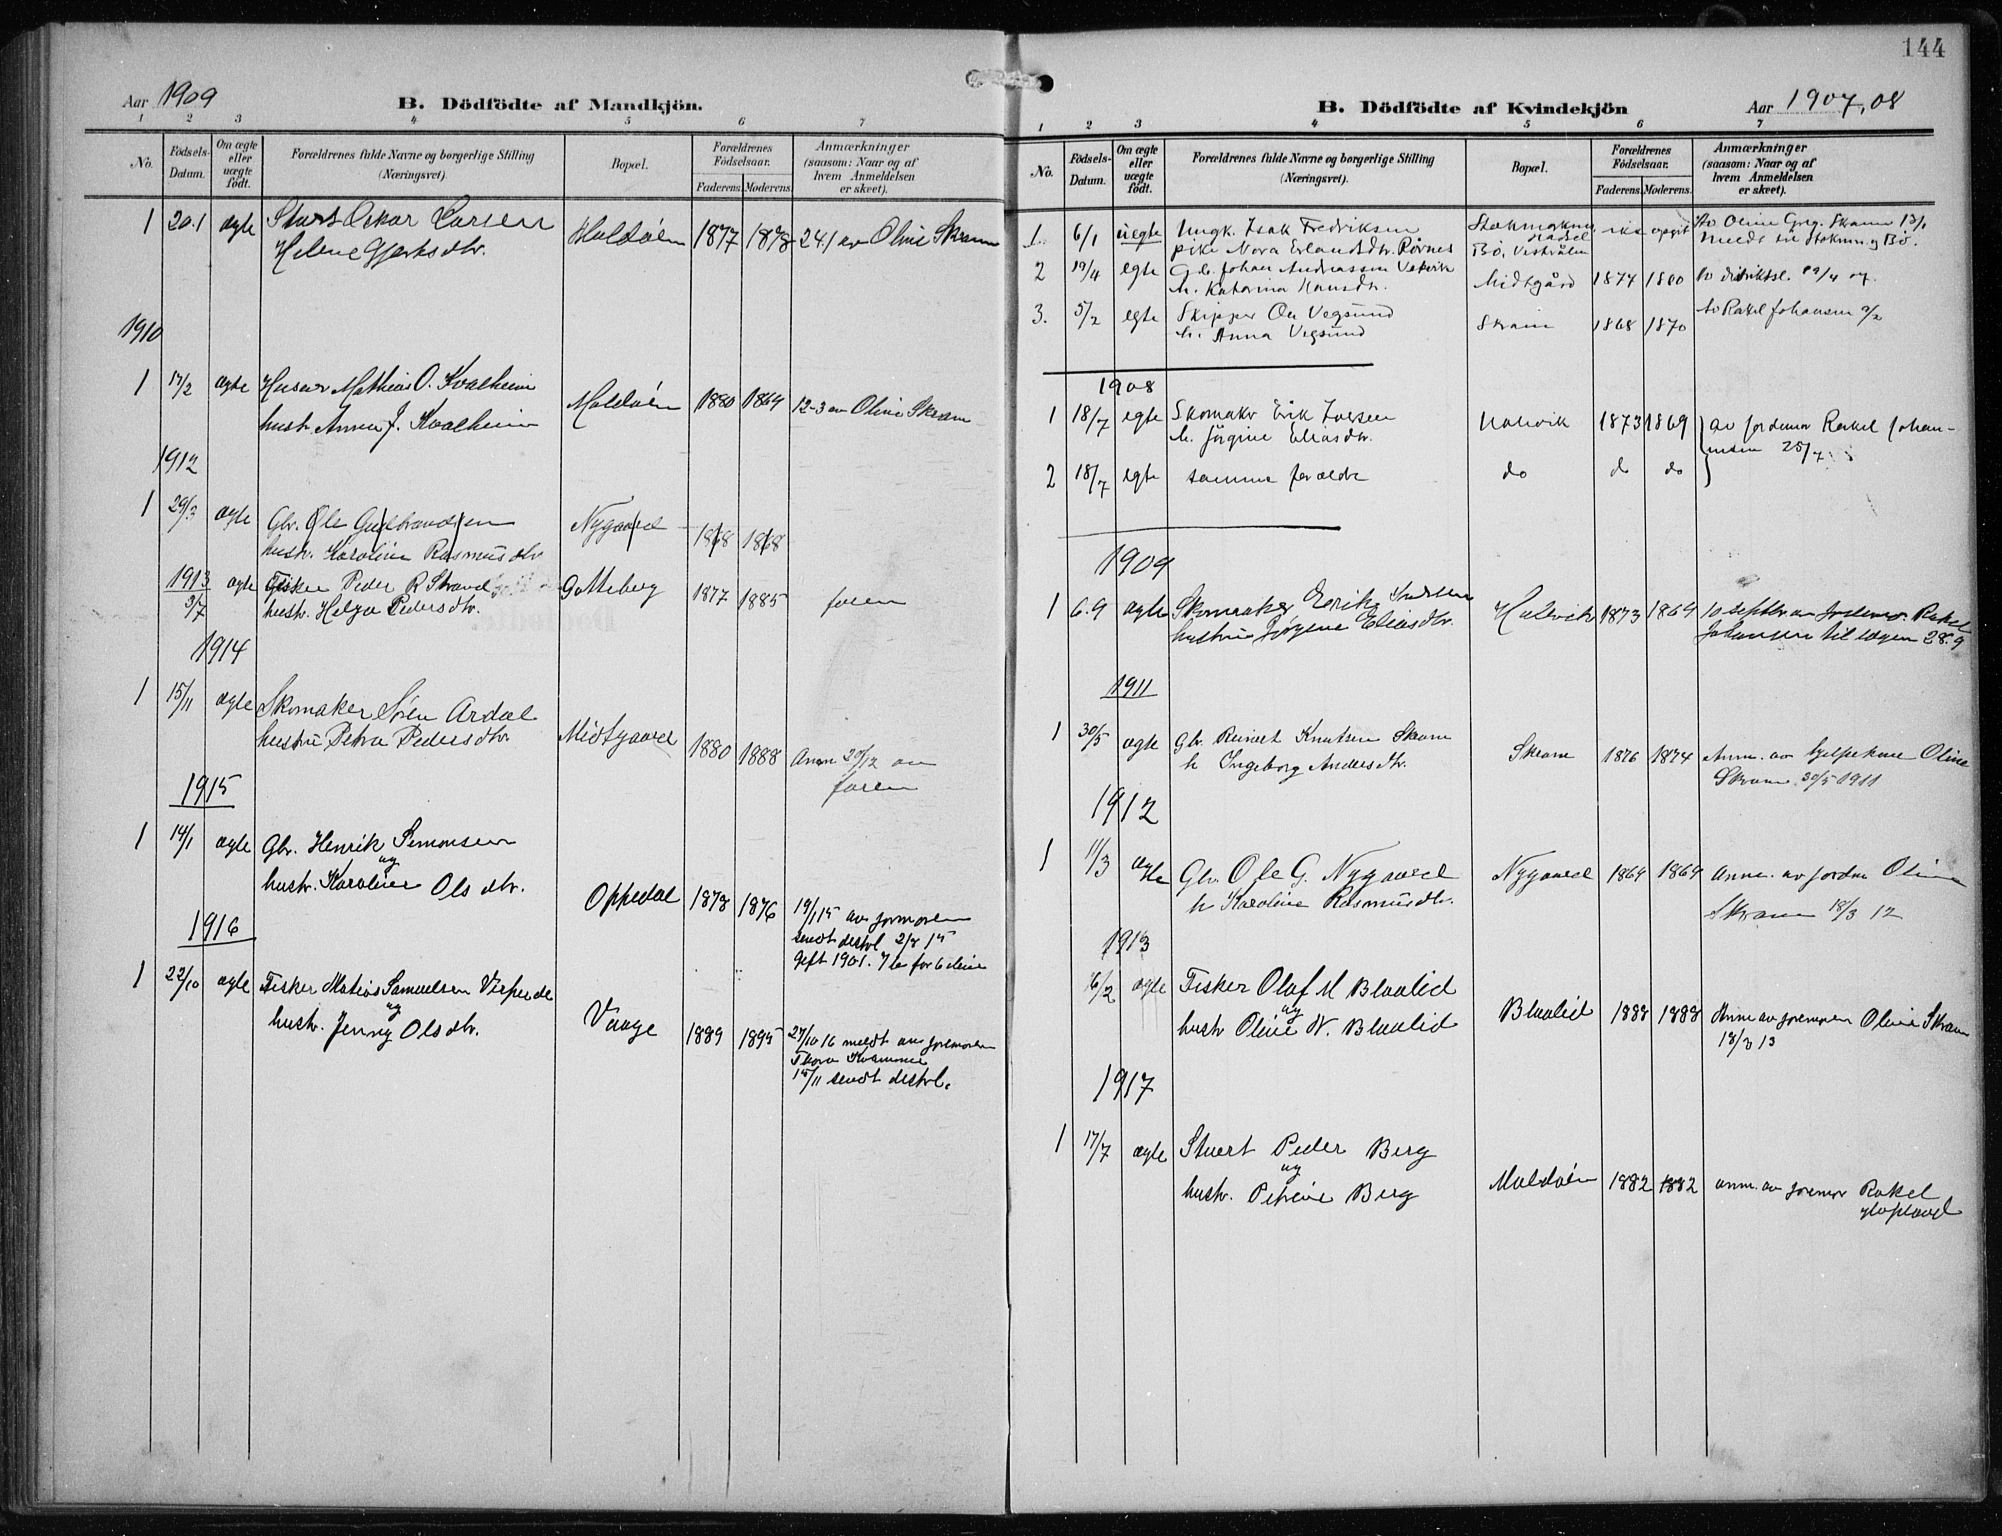 Aar 1909
B. Dödfödte af Mandkjön.
1 2 3 4 5 6 7
No.
Födsels-
Datum.
Om ægte
eller
uægte
födt.
Forældrenes fulde Navne og borgerlige Stilling
(Næringsvei).
Bopæl.
Forældrenes
Födselsaar.
Faderens. Moderens.
Anmærkninger
(saasom: Naar og af
hvem Anmeldelsen
er skeet).
1 20.1 ægte Oskar Larsen
Helene
Moldøen 1877 1878 24.1 av Oline Skram
1910
1 17/2 ægte Mathias O. Kvalheim
hust. Anna J. Kvalheim
Moldøen 1880 1864 12-3 av Oline Skram
1912
1 29/3 ægte Gbr. Ole Gulbrandsen
hustr. Karoline Rasmusdtr.
Nygaard 1868 1868
1913
3/7 ægte Fisker Peder R Strand
hustr. Helga Pedersdtr.
Gotteberg 1877 1885 faren
1914
1 15/11 ægte Skomaker Søren Ardal
hustru Petra Pedersdtr.
Midtgaard 1880 1888 Anm 20/12 av
faren
1915
1 14/1 ægte Gbr. Henrik Simonsen
og
hustr. Karoline Olsdtr.
Oppedal 1878 1876 19/1 15 av jormoren
sendt distrl 2/8 15
Gift 1901. 7 b
1916
1 22/10 ægte Fisker Matias Samuelsen
og
hustr. Jenny Olsdtr.
Vaage 1889 1895 27/10 16 meldt av jormoren
15/11 sendt distrl.
144
B. Dödfödte af Kvindekjön
Aar 1907, 08
1 2 3 4 5 6 7
No.
Födsels-
Datum.
Om ægte
eller
uægte
födt.
Forældrenes fulde Navne og borgerlige Stilling
(Næringsvei).
Bopæl.
Forældrenes
Födselsaar.
Faderens. Moderens.
Anmærkninger
(saasom: Naar og af
hvem Anmeldelsen
er skeet).
1. 6/1 uegte Ungk. Isak Fredriksen
pike Nora Erlandsdtr. Røvnes
Bø. Vesterålen
ikke opgit
Av Oline Greg. Skram 13/1
meldt til Stokm. og Bø.
2 19/4 egte Gb. Johan Andreassen
h. Katarina Hansdtr.
Midtgård 1874 1880
3. 5/2 egte Skipper Ole Vegsund
h. Anna Vegsund
Skram 1868 1870 Av Rakel Johansen 9/2
1908
1 18/7 egte Skomaker Erik Iversen
h. Jørgine Eliasdtr.
Holvik 1873 1869 av jordmor Rakel Johan-
nsen 25/7
2 18/7 egte samme forældre do do do
1909
1 6.9 ægte Skomaker Erik Iversen
hustru Jørgine Eliasdtr.
Holvik 1873 1869 10 septbr. av jordemor Rakel
Johansen til lægen 28.9
1911
1 30/5 ægte Gbr. Reinert Knutsen Skram
h Ingeborg Andersdtr.
Skram 1876 1874 Anm. av hjelpekone Oline
Skram 30/5 1911
1912
1 11/3 ægte Gbr. Ole G. Nygaard
h Karoline Rasmusdtr.
Nygaard 1869 1869 Anm. av jordm Oline
Skram 18/3 12
1913
16/2 ægte Fisker Olaf M Blaalid
og
hustr Oline W. Blaalid
Blaalid 1888 1888 Anm av jormoren Oline Skram
18/3 13
1917
1 17/7 ægte Stuert Peder Berg
og
hustr. Petrine Berg
Moldøen 1882 1882 anm. av jormor Rakel